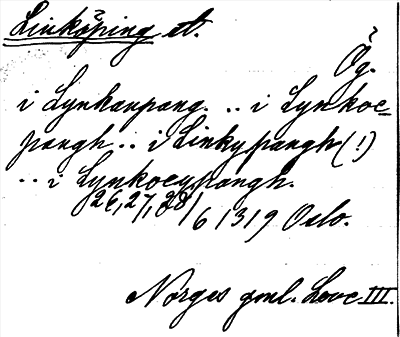 Linköping st.
Ög.
i Lynkanpang. .. i Lynkoe-
pangh .. i Linkypangh (!)
.. i Lynkoeypangh.
26, 27, 28/6 1319 Oslo.
Norges gml. Love III.